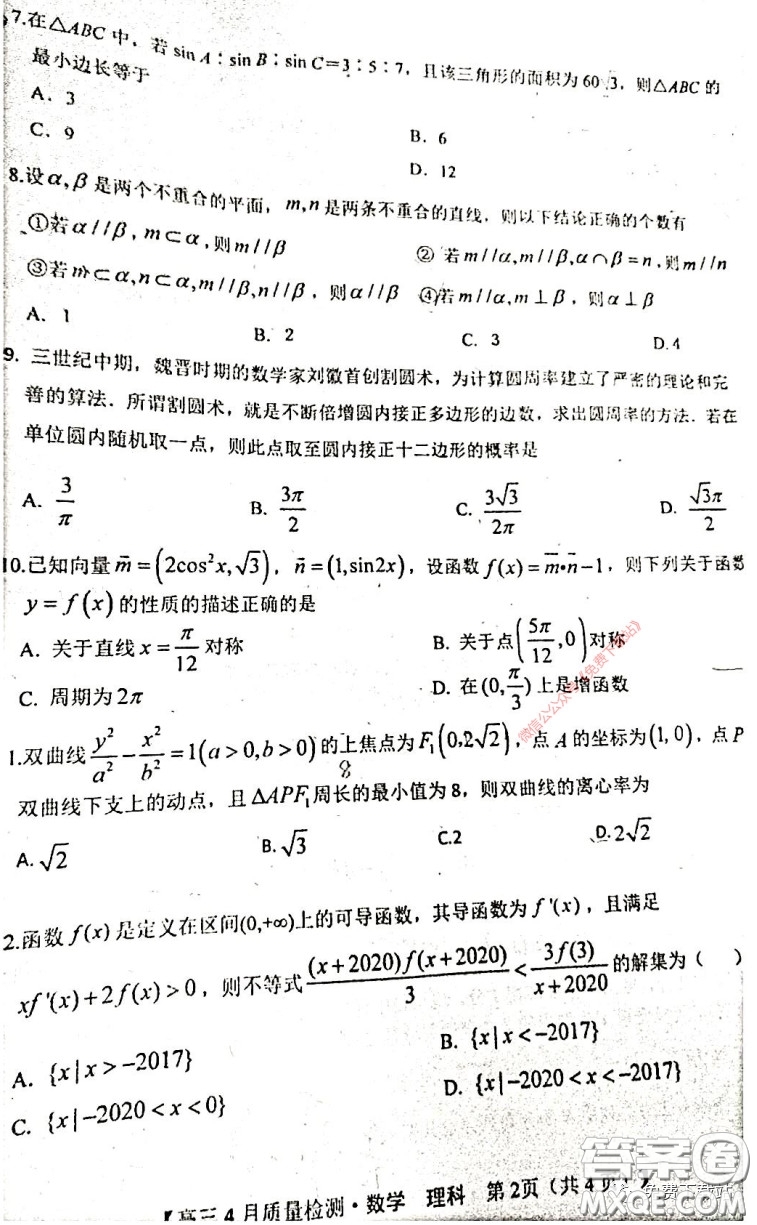 7.在△ABC 中，若 sin A : sin B : sin C=3 : 5 : 7，且该三角形的面积为 60√3，则△ABC 的
最小边长等于
A. 3
B. 6
C. 9
D. 12
8.设α,β是两个不重合的平面，m,n是两条不重合的直线，则以下结论正确的个数有
①若α//β,m⊂α,则m//β ② 若m//α,m//β,α∩β=n,则m//n
③若m⊂α,n⊂α,m//β,n//β，则α//β ④若m//α,m⊥β，则α⊥β
A. 1 B. 2 C. 3 D.4
9. 三世纪中期，魏晋时期的数学家刘徽首创割圆术，为计算圆周率建立了严密的理论和完
善的算法．所谓割圆术，就是不断倍增圆内接正多边形的边数，求出圆周率的方法．若在
单位圆内随机取一点，则此点取至圆内接正十二边形的概率是
A. 3/π B. 3π/2 C. 3√3/2π D. √3π/2
10.已知向量m=(2cos²x,√3)，n=(1,sin2x)，设函数f(x)=m•n−1，则下列关于函数
y=f(x)的性质的描述正确的是
A. 关于直线x=π/12对称 B. 关于点(5π/12,0)对称
C. 周期为2π D. 在(0,π/3)上是增函数
1.双曲线y²/a²−x²/b²=1(a>0,b>0)的上焦点为F₁(0,2√2)，点 A 的坐标为(1,0)，点 P
8
双曲线下支上的动点，且ΔAPF₁周长的最小值为8，则双曲线的离心率为
A.√2 B.√3 C.2 D.2√2
2.函数f(x)是定义在区间(0,+∞)上的可导函数，其导函数为f'(x)，且满足
xf'(x)+2f(x)>0，则不等式(x+2020)f(x+2020)/3<3f(3)/x+2020的解集为（ ）
A. {x|x>-2017} B. {x|x<-2017}
C. {x|-2020<x<0} D. {x|-2020<x<-2017}
【高三4月质量检测·数学 理科 第2页（共4页）
微信公众号《免费下载站》
答案圈
MXQE.COM